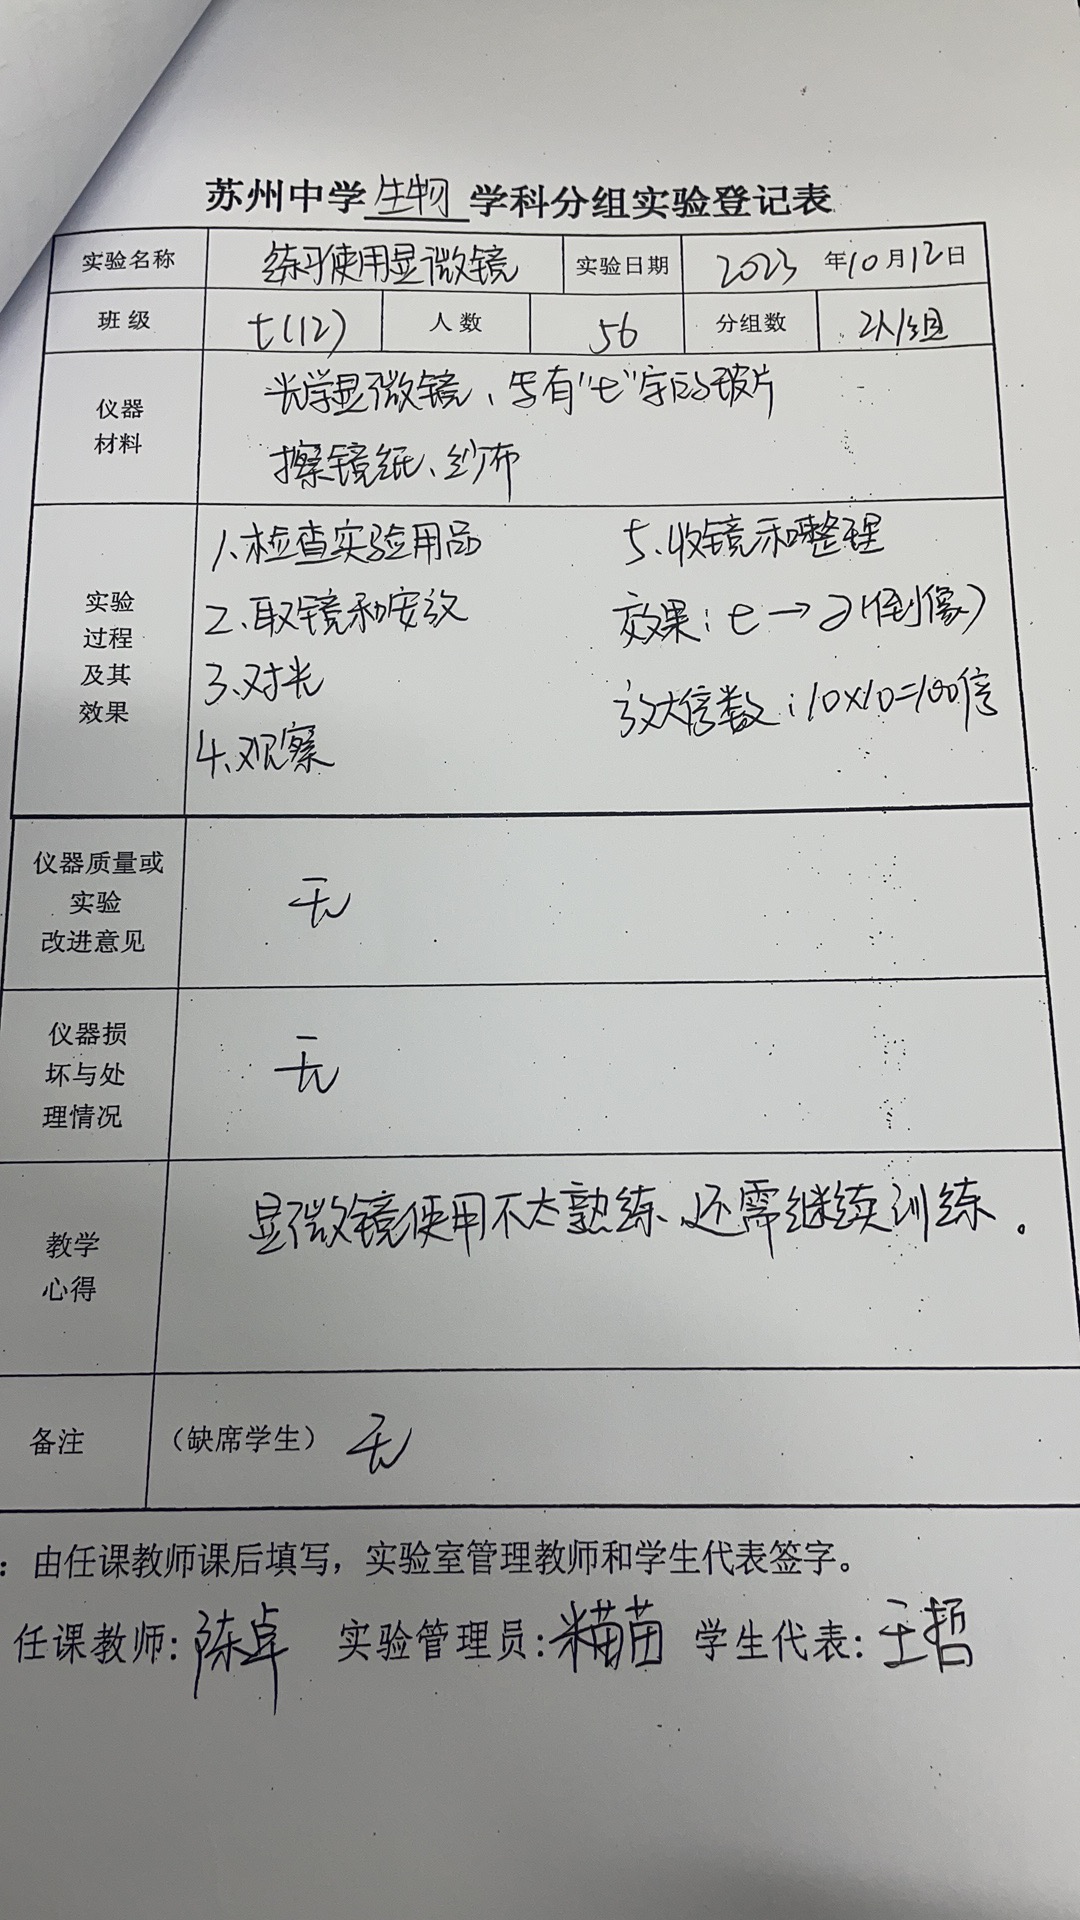 苏州中学生物学科分组实验登记表
实验名称 练习使用显微镜 实验日期 2023年10月12日
班级 七(12) 人数 56 分组数 2人/组
仪器
材料
光学显微镜、写有"七"字的玻片
擦镜纸、纱布
实验
过程
及其
效果
1、检查实验用品
2、取镜和安放
3、对光
4、观察
5、收镜和整理
效果：七→(倒像)
放大倍数：10×10=100倍
仪器质量或
实验
改进意见
无
仪器损
坏与处
理情况
无
教学
心得
显微镜使用不太熟练、还需继续训练。
备注 （缺席学生） 无
：由任课教师课后填写，实验室管理教师和学生代表签字。
任课教师:陈卓 实验管理员:苗 学生代表:王哲